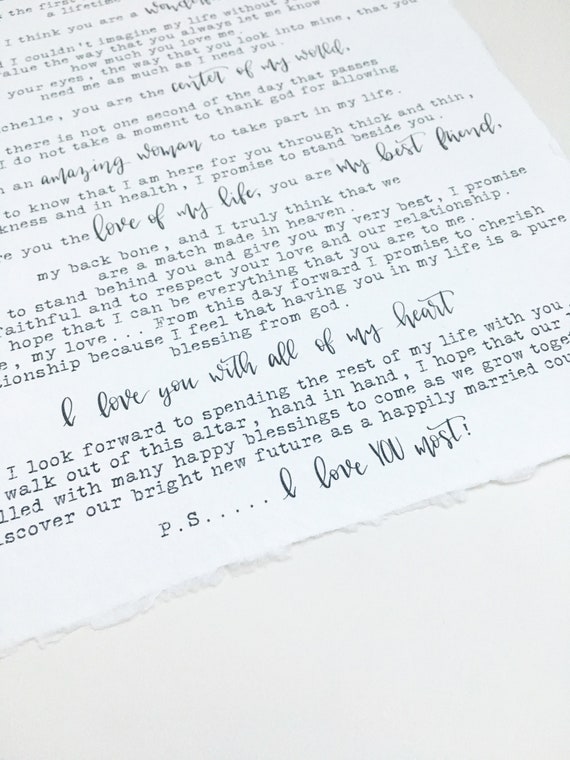 the first
a lifetime
I think you are a
I couldn't imagine my life without
value the way that you always let me know
how much you love me.
your eyes, the way that you look into mine, that you
need me as much as I need you.
you are the center of my world,
there is not one second of the day that passes
I do not take a moment to thank god for allowing
an amazing woman to take part in my life.
to know that I am here for you through thick and thin,
and in health, I promise to stand beside you.
you the love of my life, you are my best friend,
my back bone, and I truly think that we
are a match made in heaven.
to stand behind you and give you my very best, I promise
faithful and to respect your love and our relationship.
hope that I can be everything that you are to me.
, my love... From this day forward I promise to cherish
because I feel that having you in my life is a pure
blessing from god.
I love you with all of my heart
I look forward to spending the rest of my life with you
walk out of this altar, hand in hand, I hope that our
with many happy blessings to come as we grow
our bright new future as a happily married
P.S..... I love YOU most!